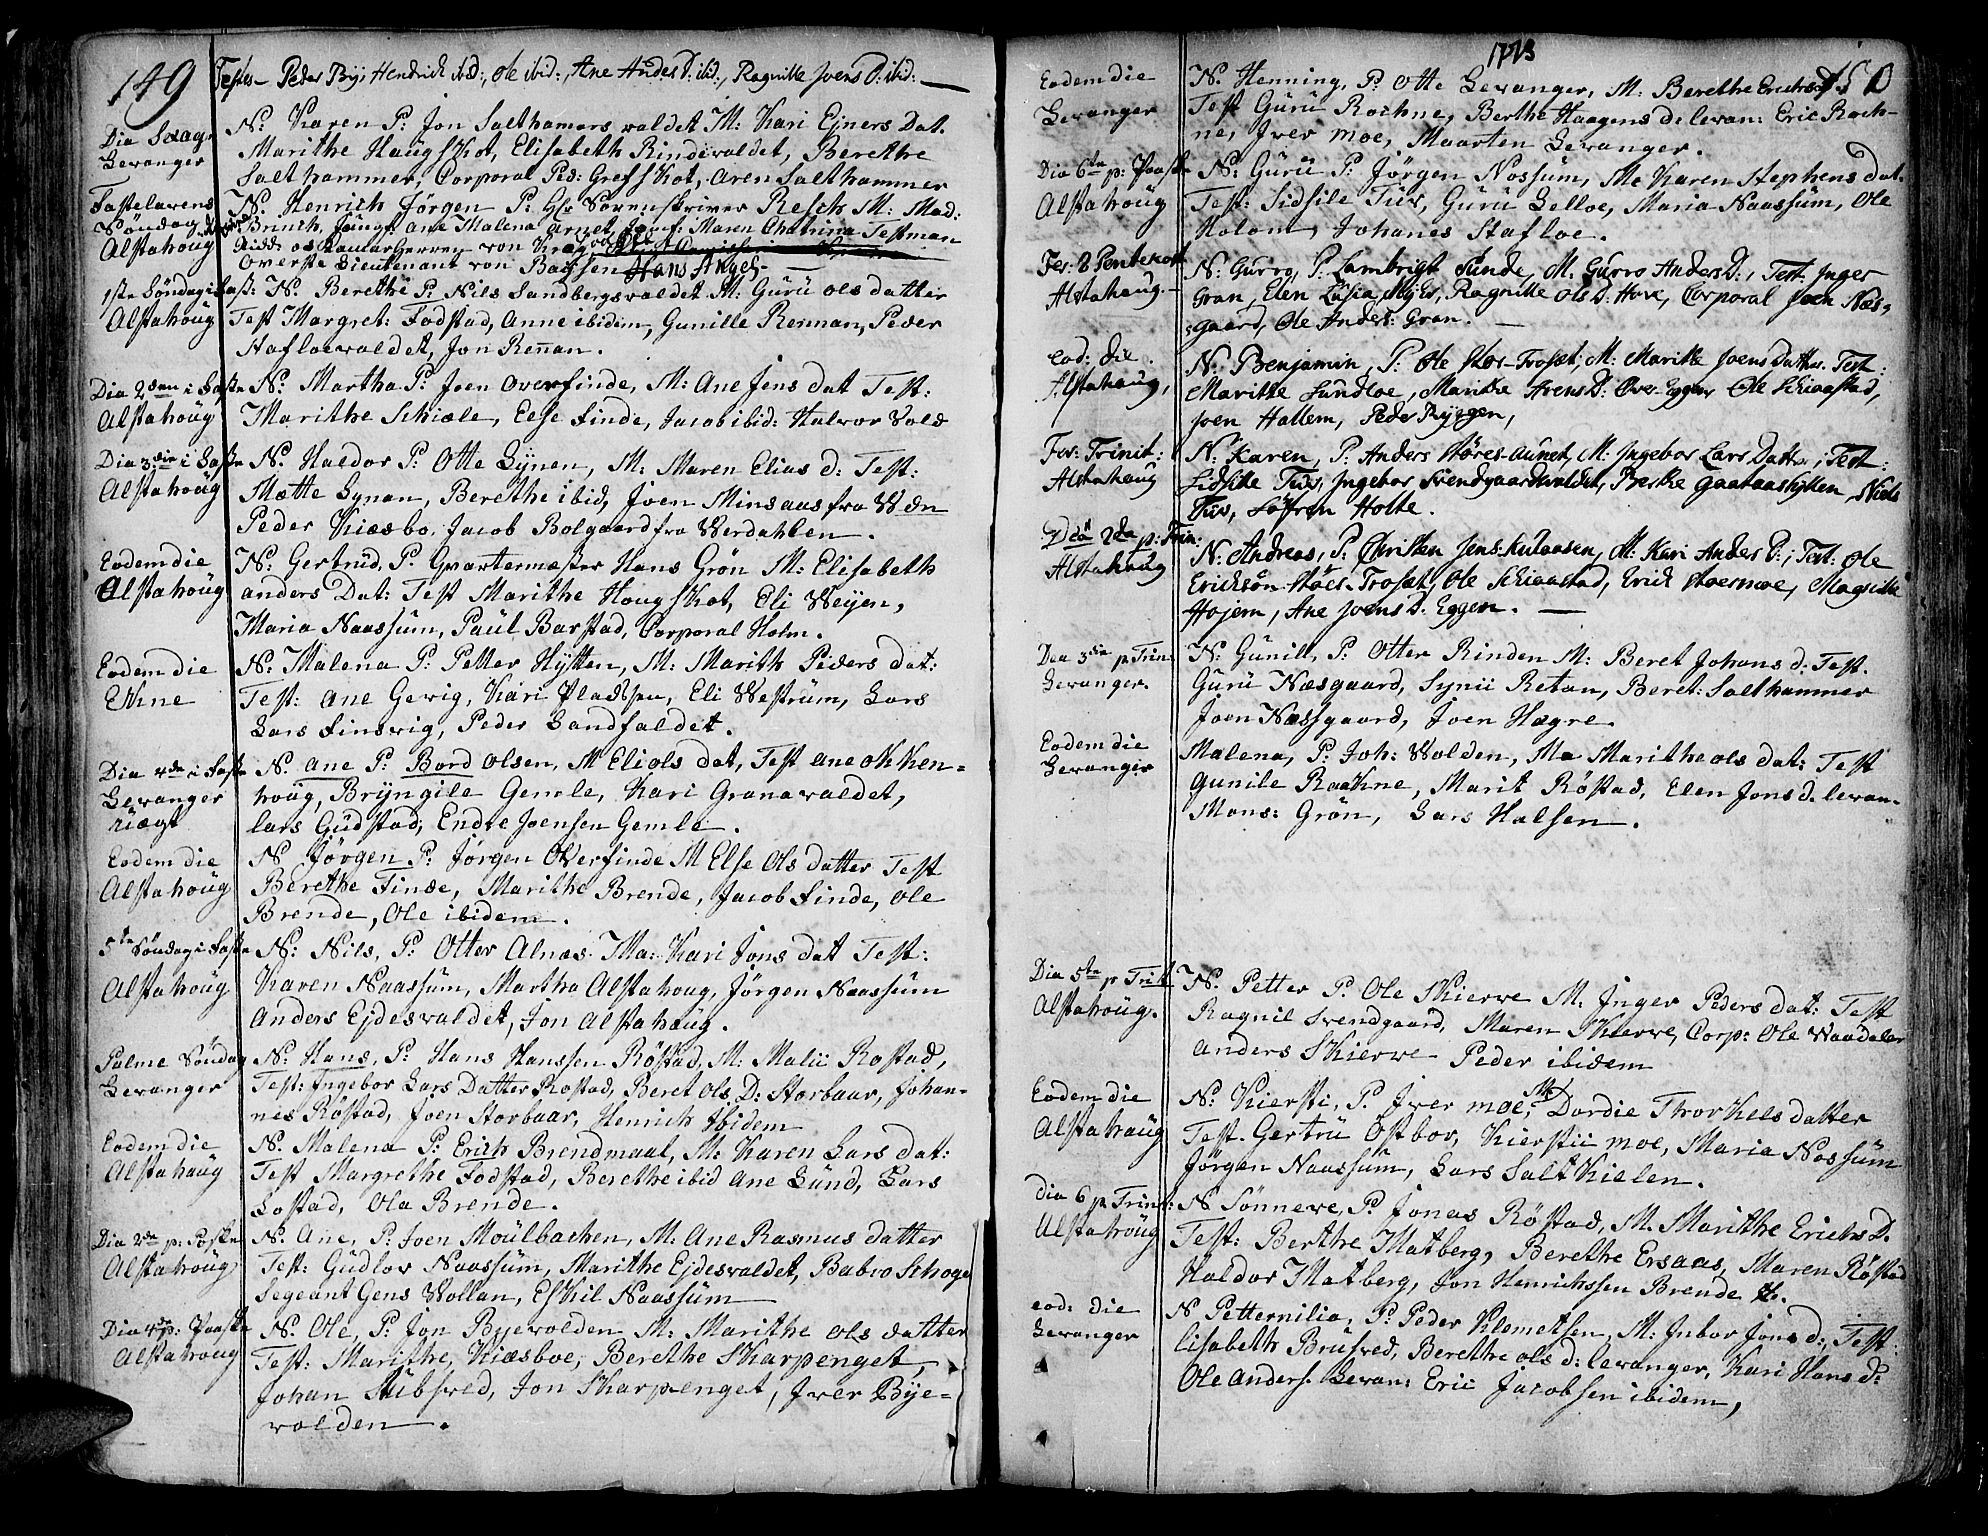 149
Testes Peder Bye, Hendrich ibid:, Ole ibid:, Ane AndersD: ibid:, Ragnille JoensD: ibid:
Dia Sexag:
Levanger
N: Karen P: Jon Salthamers valdet M: Kari Ejners Dat.
Marithe Haügskot, Elisabeth Rindevaldet, Berethe
Salthammer, Corporal Ped: Gresskot, Aren Salthammer
Fastelavens
Søndag
Alstahoüg
N: Henrich Jørgen P: Hr Sorenskriver Resch M: Mad:
Brinch, Jomfr: Maren Chatrina Testman
von Krag
Overste Lieutenant von Bassen Hans Angel
1ste Søndag i Fast:
Alstahoüg
N. Berethe P: Nils Sandbergsvaldet M: Gurü ols datter
Test Margret: Fodstad, Anne ibidem, Gunille Rennan, Peder
Hafloevaldet, Jon Rennan.
Dia 2den i Faste
Alstahoüg
N: Martha P: Joen Overfinde, M: Ane Jens dat Test:
Marithe Schiæle, Else Finde, Jacob ibid: Halvor Vold
Dia 3die i Faste
Alstahoüg
N. Haldor P: Otte Lÿnen, M: Maren Elias d: Test:
Mætte Lynan, Berethe ibid, Joen Minsaas fra
Peder Kiæsbo, Jacob Bolgaard fra Werdahlen.
Eodem die
Alstahoüg
N: Gertrüd, P: Qvartermæster Hans Grön M: Elisabeth
anders Dat: Test Marithe Hougskot, Eli Weÿen,
Maria Naassüm, Paül Barstad, Corporal Holm.
Eodem die
Ekne
N: Malena P: Petter Hÿtten, M: Marith Peders dat:
Test: Ane Gevig, Kari Pladsen, Eli Westrüm, Lars
Lars Finsvig, Peder Sandfaldet.
Dia 4de i Faste
Levanger
N. Ane P: Bord Olsen, M Eli ols dat, Test ane okken=
hoüg, Brÿngile Gemle, Kari Granavaldet,
lars Gudstad, Endre Joensen Gemle.
Eodem die
Alstahoüg
N Jørgen P: Jørgen Overfinde M Else Ols datter Test
Berethe Finde, Marithe Brende, Jacob Finde, ole
Brende, Ole ibidem.
5te Søndag i Faste
Alstahoüg
N: Nils, P: Otter Alnæs. Ma: Kari Jons dat Test:
Karen Naassum, Martha Alstahoug, Jørgen Naassum
Anders Ejdesvaldet, Jon Alstahaüg.
Palme Søndag
Levanger
N: Hans, P: Hans Hanssen Röstad, M: Malii Rostad,
Test: Ingebor Lars Datter Rostad, Beret ols D: Storbaar, Johan=
nes Röstad, Joen Storbaar, Henrich Ibidem
Eodem die
Alstahaüg
N. Malena P: Erich Brendmaat, M: Karen Lars dat:
Test Margrethe Fodstad, Berethe ibid Ane Lünd, Lars
Lostad, Ola Brende.
Dia 2de p: Paaske
Alstahoüg
N. Ane, P: Joen Moülbachen, M: Ane Rasmus datter
Test: Güdlov Naassüm, Marithe Ejdesvaldet, Babro Schoge
Segeant Gens Wollan, Eskil Naassüm
Dia 4 p: Paaske
Alstahoüg
N. Ole, P: Jon Byevolden M: Marithe ols datter
Test: Marithe, Kiæsboe, Berethe Skarpenget,
Johan Stübsved, Jon Skarpenget, Iver Bÿe=
volden.
1773
150
Eodem die
Levanger
N. Henning, P: Otte Levanger, M: Berethe Erichs d.
Test Gurü Rochne, Berthe Haagens d. levan: Eric Roch=
ne, Iver Moe, Maarten Levanger.
Dia 6te p: Paaske
Alstahoüg
N: Gürü P: Jörgen Nossum, M: Karen Stephens dat.
Test: Sidsile Tüv, Gürü Selloe, Maria Naassüm, Ole
Holom Johanes Stafloe.
Fer: 2 Pentekost
Alstahaug.
N: Gurro, P: Lambrigt Sunde, M: Gurro Anders D:, Test: Inger
Gran, Elen Lusia Mejer, Ragnille Ols D: Hove, Corporal Joen Næs=
gaard, Ole Anders: Gran.
eod: die.
Alstahaug,
N: Benjamin, P: Ole Stor-Troset, M: Marithe Joens Datter. Test:
Maritte Sundloe, Marithe ArensD: Over-Eggen Ole Schiaastad,
Joen Hallem, Peder Byggen,
Fer: Trinit:
Alstahaug
N: Karen, P: Anders Høres-aunet, M: Ingebor Lars Datter, Test:
Sidsile Tuv, Ingebor Svendgaardsvaldet, Berthe Gaataashytten, Niels
Tuv, Söfren Holte.
Dca 2da p: Trin:
Alstahaug
N: Andreas, P: Christen Jens Kulaasen, M: Kari Anders D:, Test: Ole
Erickson Høes-Troset, Ole Schiaastad, Erich Moe, Magnille
Hojem, Ane Joens D. Eggen.
Dea 3die p Trin:
Levanger.
N: Gunil, P: Otter Rinden M: Beret Johans d: Test.
Gurü Næsgaard, Synii Retan, Beret: Salthammer
Joen Næssgaard, Joen Hægre.
Eodem die
Levanger
Malena, P: Joh: Wolden, Ma Marithe ols dat: Test
Gunile Raakne, Marit Röstad, Elen Jons d. levan.
Mons: Grön, Lars Halsen.
Dia 5te p Trit.
Alstahoüg.
N. Petter P: Ole Skierve M: Inger Peders dat: Test
Ragnil Svendgaard, Maren Skierve, Corp: Ole Waadaler
anders Skierve Peder ibidem
Eodem die
Alstahaüg
N: Kiersti, P. Iver moe, M: Dordie Thorkels datter
Test. Gertrü Ostbor, Kierstii moe, Maria Nossüm
Jörgen Naassum, Lars Saltkielen.
Dia 6 p Trinit:
Alstahoüg
N Sönneve, P: Jonas Röstad, M. Marithe Erichs D.
Test: Berthe Matberg, Berethe Ersaas, Maren Röstad
Haldor Matberg, Jon Henrichssen Brende
eod: die
Levanger
N Petternilia, P: Peder Klemetsen, M: Inbor Jons d:, Test:
lisabeth Brüsved, Berethe ols d: levanger, Kari Hans d:
Ole Anders. Levan: Eric Jacobsen ibidem,